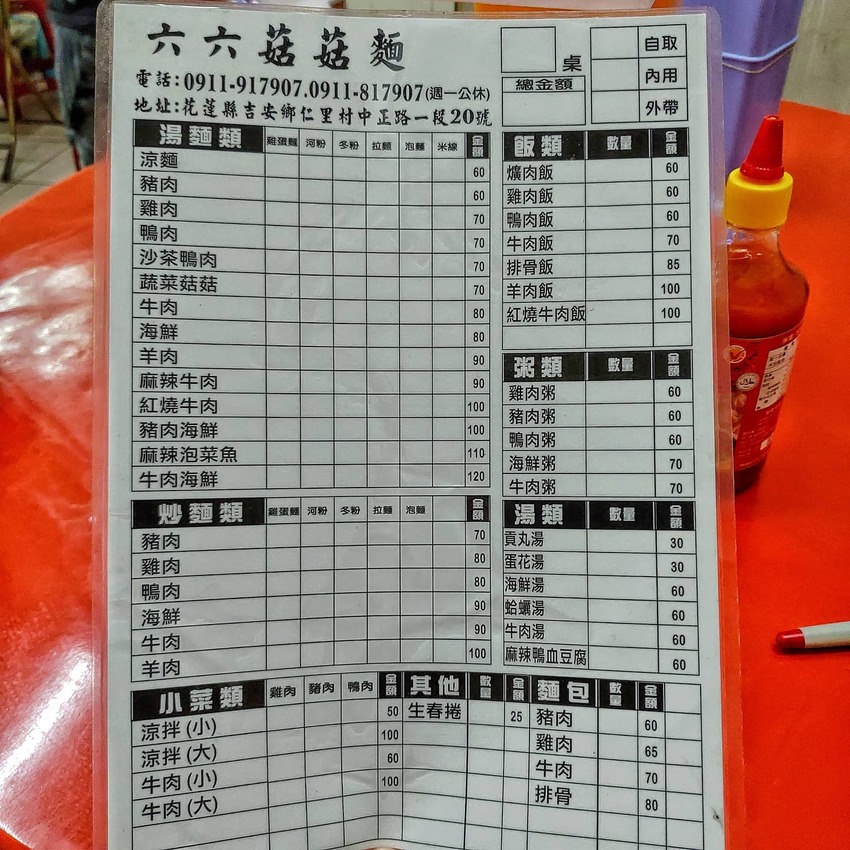 六六菇菇麵
電話:0911-917907.0911-817907(週一公休)
地址:花蓮縣吉安鄉仁里村中正路一段20號
桌
總金額
自取
內用
外帶
湯麵類 雞蛋麵 河粉 冬粉 拉麵 泡麵 米線 金額
涼麵 60
豬肉 60
雞肉 70
鴨肉 70
沙茶鴨肉 70
蔬菜菇菇 70
牛肉 80
海鮮 80
羊肉 90
麻辣牛肉 90
紅燒牛肉 100
豬肉海鮮 100
麻辣泡菜魚 110
牛肉海鮮 120
炒麵類 雞蛋麵 河粉 冬粉 拉麵 泡麵 金額
豬肉 70
雞肉 80
鴨肉 80
海鮮 90
牛肉 90
羊肉 100
小菜類 雞肉 豬肉 鴨肉 金額
涼拌(小) 50
涼拌(大) 100
牛肉(小) 60
牛肉(大) 100
其他 數量 金額
生春捲 25
飯類 數量 金額
爌肉飯 60
雞肉飯 60
鴨肉飯 60
牛肉飯 70
排骨飯 85
羊肉飯 100
紅燒牛肉飯 100
粥類 數量 金額
雞肉粥 60
豬肉粥 60
鴨肉粥 60
海鮮粥 70
牛肉粥 70
湯類 數量 金額
貢丸湯 30
蛋花湯 30
海鮮湯 60
蛤蠣湯 60
牛肉湯 60
麻辣鴨血豆腐 60
麵包 數量 金額
豬肉 60
雞肉 65
牛肉 70
排骨 80